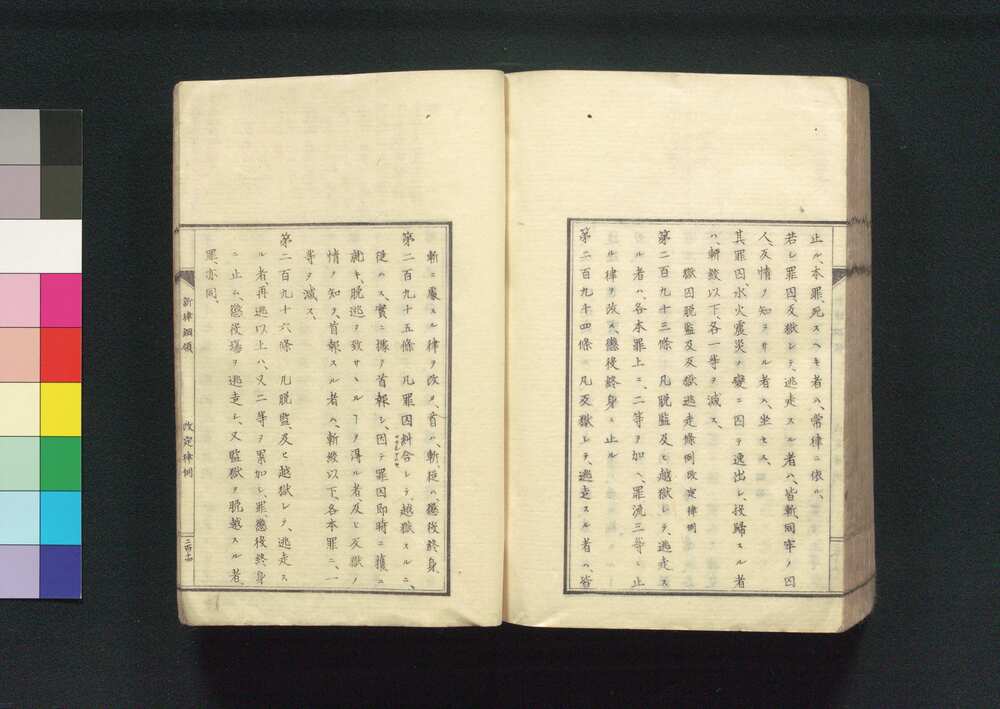 止ル、本罪、死スヘキ者ハ、常律ニ依ル、
若シ罪囚、反獄シテ、逃走スル者ハ、皆斬、同牢ノ囚
人、反情ヲ知ヲサル者ハ、坐セス、
其罪囚、水火震災ノ變ニ因テ逸出シ、投歸スル者
ハ、斬絞以下、各一等ヲ減ス、
獄囚脱監及反獄逃走條例改定律例
第二百九十三條 凡脱監、及ヒ越獄シテ、逃走ス
ル者ハ、各本罪上ニ、二等ヲ加ヘ、罪流三等ニ止
ル律ヲ改メ、懲役終身ニ止ル
第二百九十四條 凡反獄シテ、逃走スル者ハ、皆
斬ニ處スル律ヲ改メ、首ハ、斬、從ハ、懲役終身、
第二百九十五條 凡罪囚糾合シテ、越獄スルニ、
從ハス、實ニ據テ首報シ、因テ罪囚即時ニ獲ニ
就キ、脱逃ヲ致サヽルヿヲ得ル者、及ヒ反獄ノ
情ヲ知ヲ、首報スル者ハ、斬絞以下、各本罪ニ、一
等ヲ減ス、
第二百九十六條 凡脱監、及ヒ越獄シテ、逃走ス
ル者、再逃以上ハ、又二等ヲ累加シ、罪、懲役終身
ニ止ム、懲役場ヲ逃走シ、又監獄ヲ脱越スル者、
罪、亦同、
新律綱領
改定律例